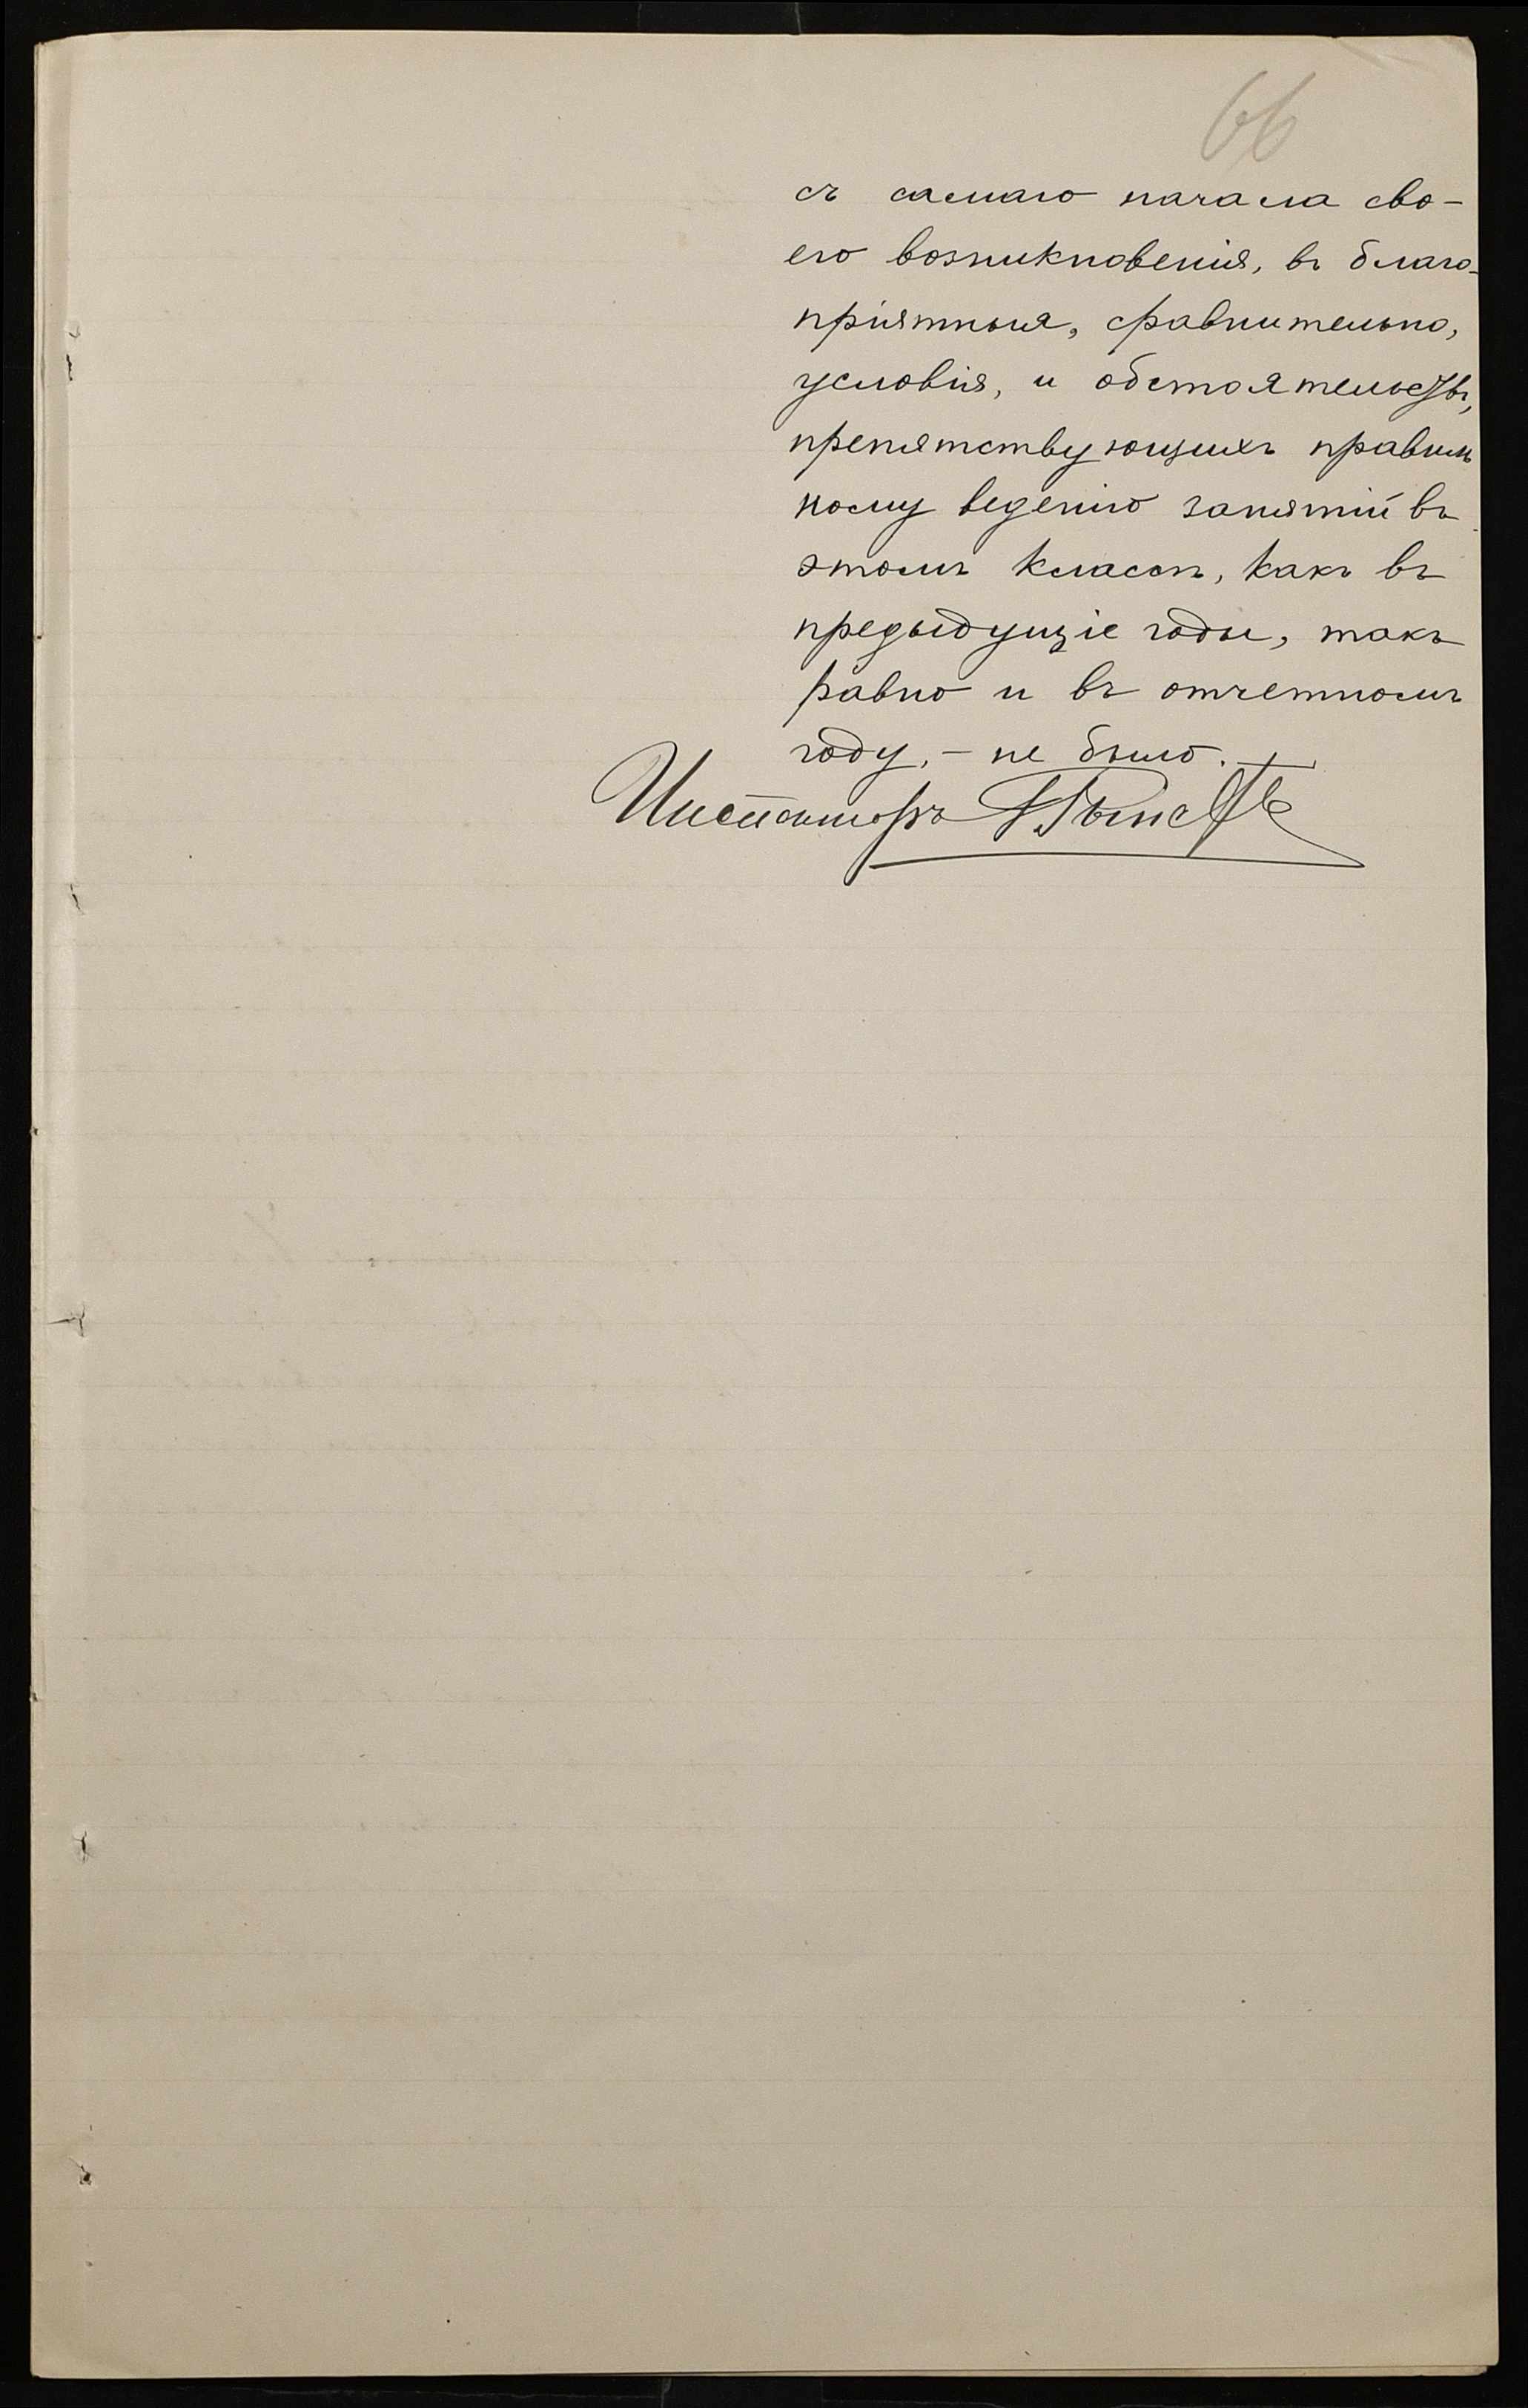 66
съ самаго начала сво-
его возникновенія, въ благо-
пріятныя, сравнительно,
условія, и обстоятельствъ,
препятствующихъ правиль
ному веденію занятій въ
этомъ классѣ, какъ въ
предыдущіе годы, такъ
равно и въ отчетномъ
году, - не было. —
Инспекторъ